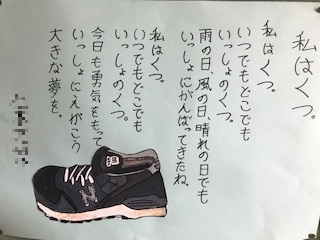 私はくつ。
私はくつ。
いつでもどこでも
いっしょのくつ。
雨の日、風の日、晴れの日でも
いっしょにがんばってきたね。
私はくつ。
いつでもどこでも
いっしょのくつ。
今日も勇気をもって
いっしょにえがこう
大きな夢を。